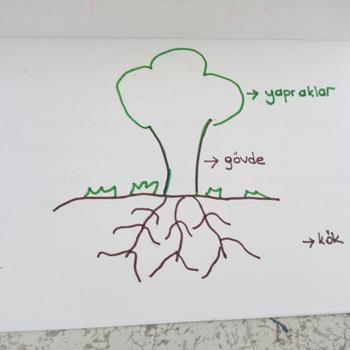 → yapraklar
→ gövde
→ kök